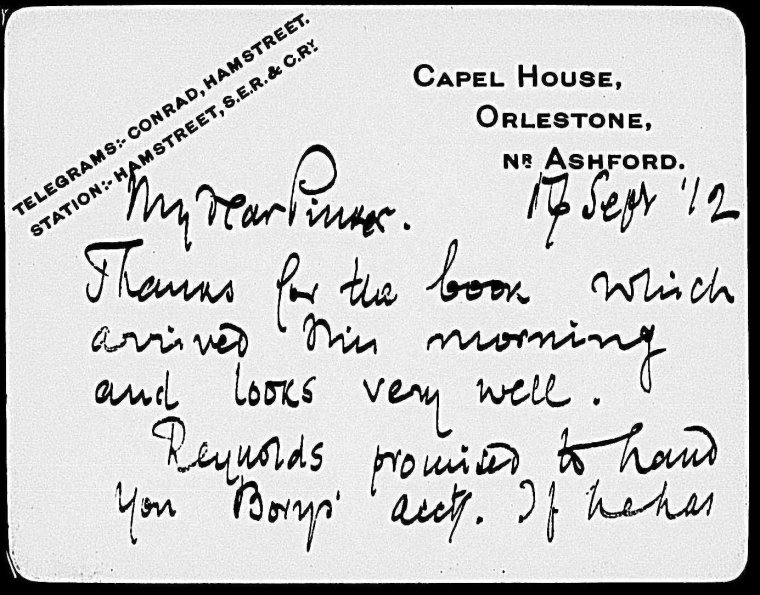 TELEGRAMS:- CONRAD, HAMSTREET.
STATION:- HAMSTREET, S.E.R. & C.RY.
CAPEL HOUSE,
ORLESTONE,
NR ASHFORD.
17 Sept '12
My dear Pinker.
Thanks for the book which
arrived this morning
and looks very well.
Reynolds promised to hand
you Borys' accts. If he has